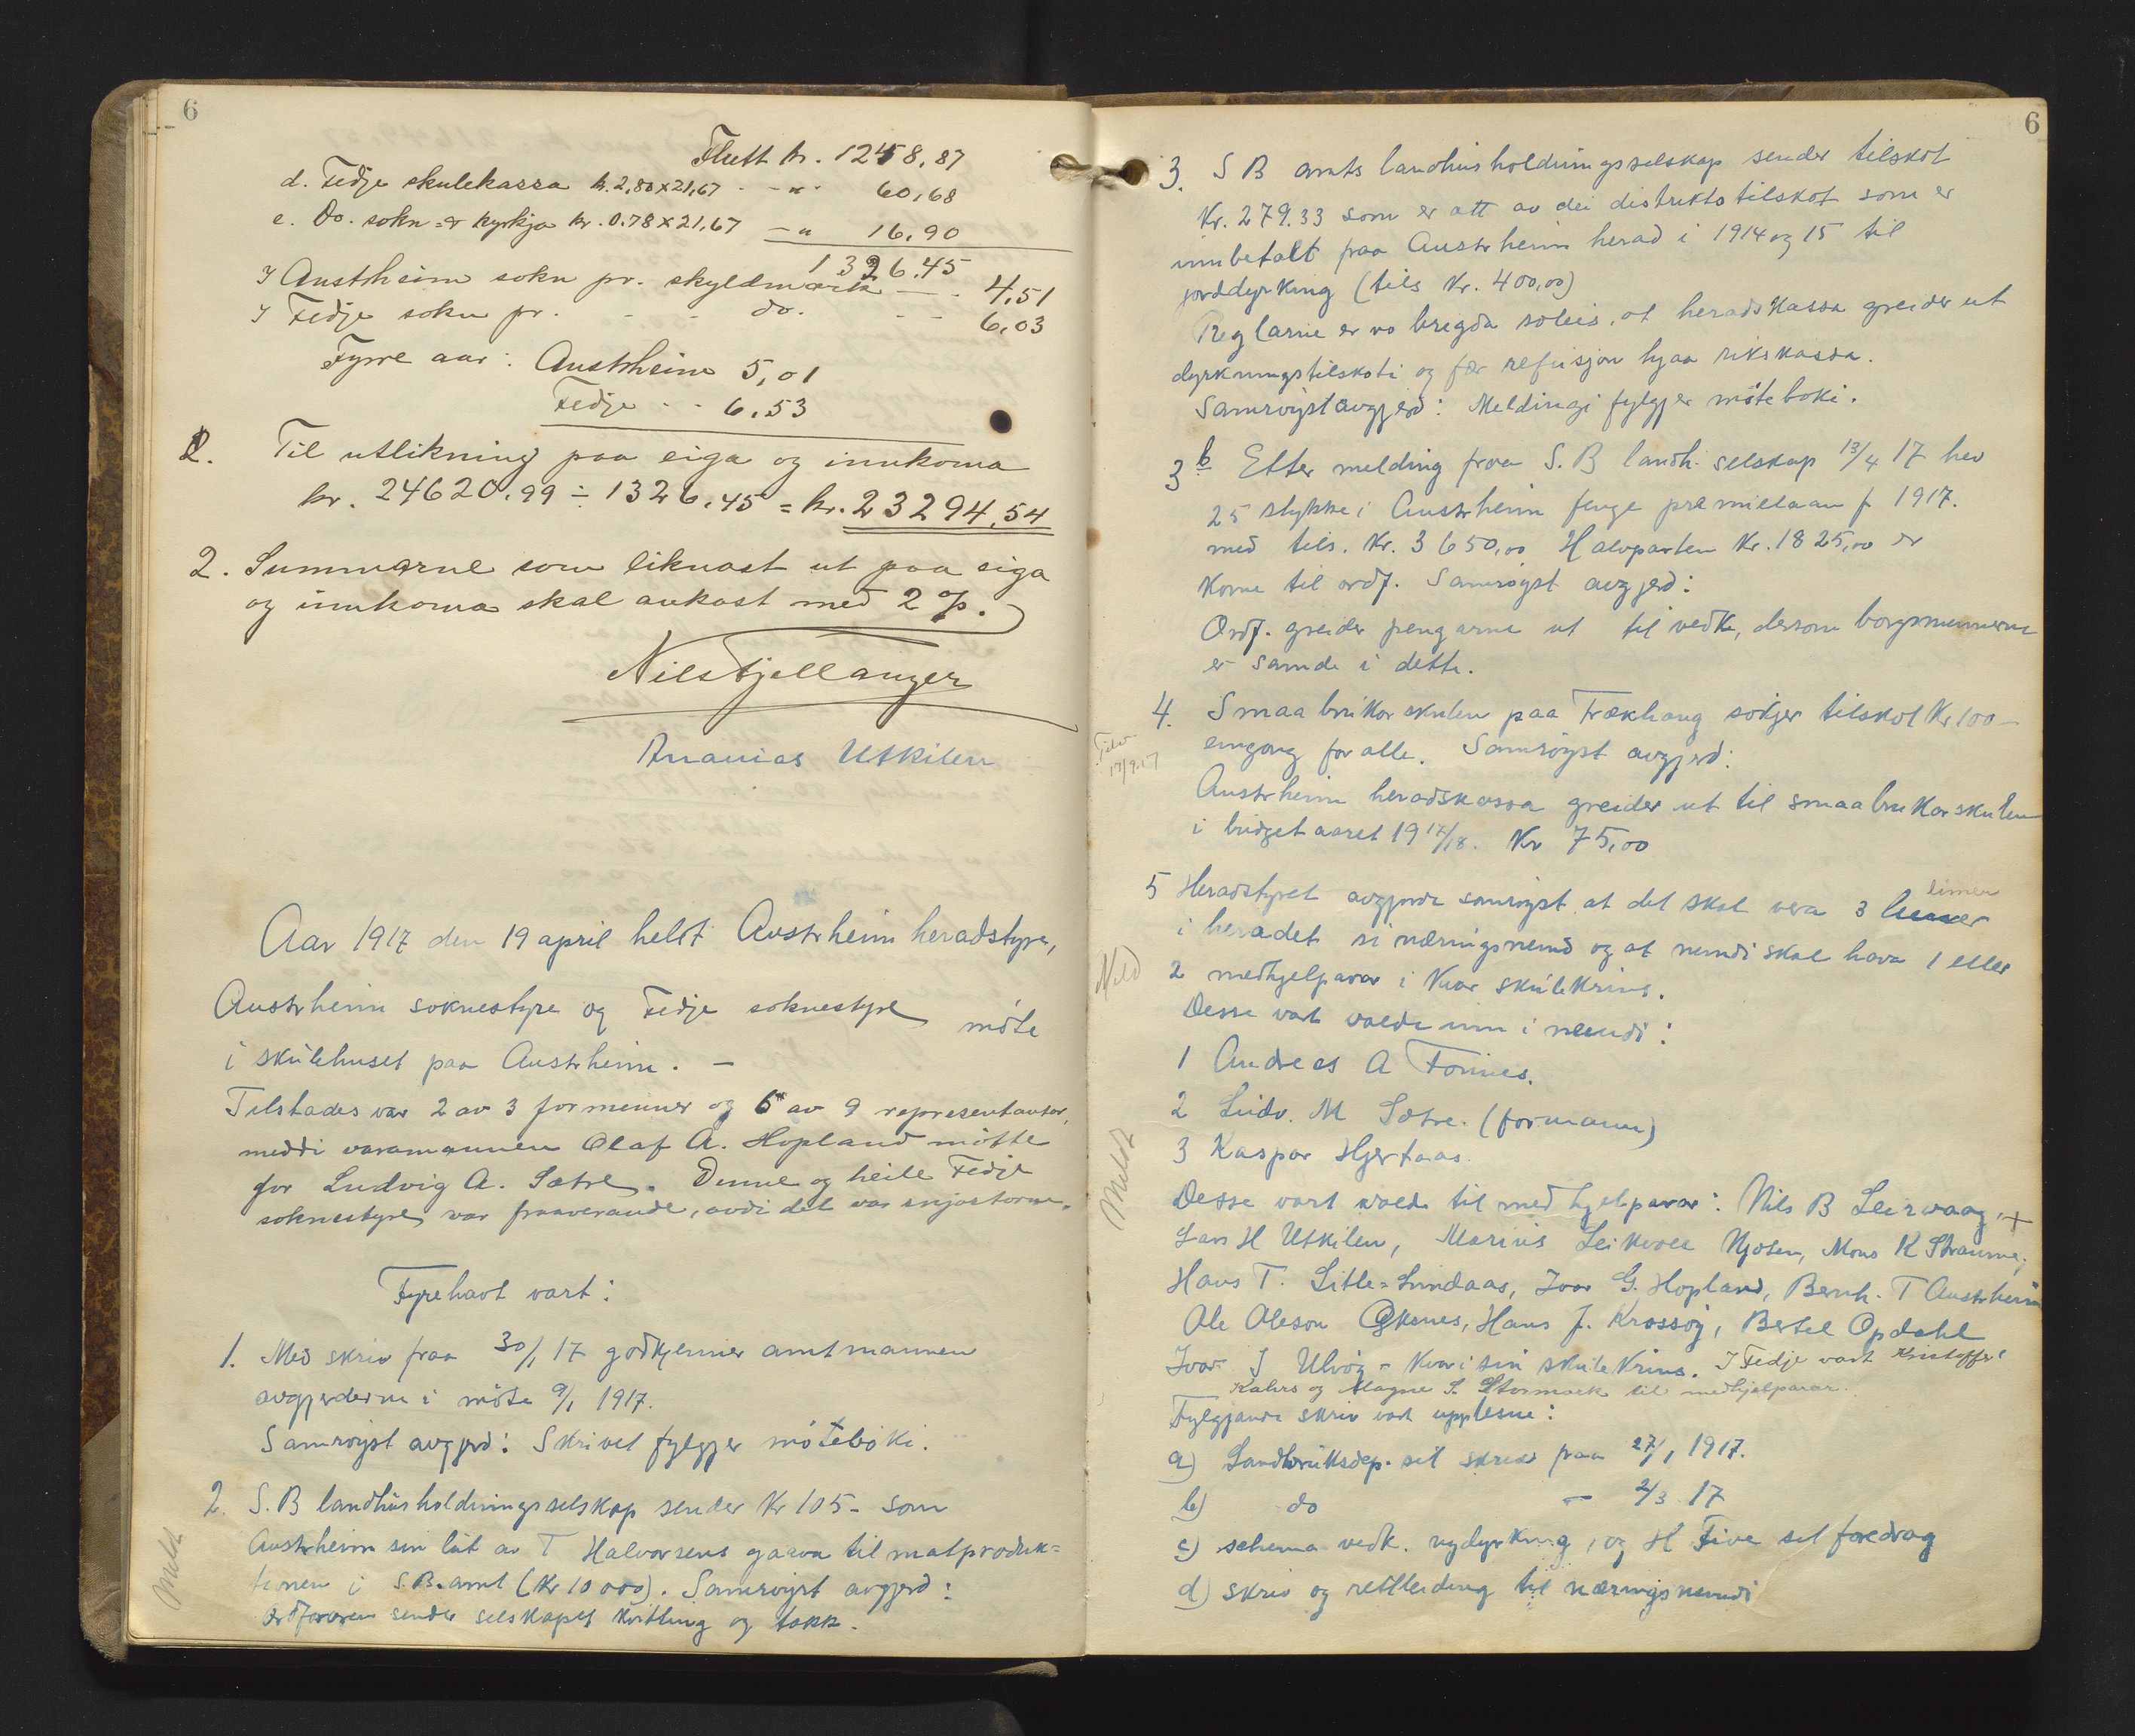 6
Flutt kr. 1248,87
d. Fedje skulekassa kr. 2,80 x 21,67 - -"- 60,68
e. Do. sokn = kyrkja kr. 0.78 x 21,67 -" 16,90
1326.45
I Austrheim sokn pr. skyldmark - - 4,51
I Fedje sokn pr. - - do. - - 6,03
Fyrre aar: Austrheim 5,01
Fedje - - 6,53
2. Til utlikning paa eiga og innkoma
kr. 24620,99 ÷ 1326,45 = kr. 23294,54
2. Summarne som liknast ut paa eiga
og innkoma skal aukast med 2 %.
Nils Fjellanger
Ananias Utkilen
Aar 1917 den 19 april heldt Austrheim heradstyre,
Austrheim soknestyre og Fedje soknestyre møte
i skulehuset paa Austrheim. -
Tilstades var 2 av 3 formenner og 6 av 9 representantar,
meddi varamannen Olaf A. Hopland møtte
for Ludvig A. Sætre. Denne og heile Fedje
soknestyre var fraaverande, avdi det var snjostorm.
Fyrehavt vart:
1. Med skriv fraa 30/1 17 godkjenner amtmannen
avgjerderne i møte 9/1 1917.
Samrøyst avgjerd: Skrivet fylgjer møteboki.
2. S.B landhusholdningsselskap sender Kr 105- som
Austrheim sin lut av T Halvorsens gaava til matproduk=
tionen i S.B.amt (Kr 10 000). Samrøyst avgjerd:
Ordføraren sender selskapet kvittling og takk.
Meldt
6
3. S B amts landhusholdningsselskap sender tilskot
Kr. 279.33 som er att av dei distriktstilskot som er
innbetalt paa Austrheim herad i 1914 og 15 til
jorddyrking (tils Kr. 400,00)
Reglarne er no brigda soleis, at heradskassa greider ut
dyrkningstilskoti og fær refusjon hjaa rikskassa.
Samrøyst avgjerd: Meldingi fylgjer møteboki.
3 b Etter melding fraa S.B landh. selskap 13/4 17 hev
25 stykke i Austrheim fenge premielaan f 1917.
med tils. Kr. 3650,00 Halvparten Kr. 1825,00 er
kome til ordf. Samrøyst avgjerd:
Ordf. greider pengarne ut til vedk, dersom borgsmennerne
er samde i dette.
4. Smaabrukarskulen paa Trækhaug søkjer tilskot Kr 100-
eingong for alle. Samrøyst avgjerd:
19/9.17
Austrheim heradskassa greider ut til smaabrukarskulen
i budgetaaret 1917/18. Kr 75,00
5 Heradstyret avgjorde samrøyst at det skal vera 3 limer
i heradet si næringsnemd og at nemdi skal hava 1 eller
Meld
2 medhjelparar i kvar skulekrins.
Desse vart valde inn i nemdi:
1 Andreas A Fonnes.
2 Ludv. M Sætre. (formann)
3 Kaspar Hjertaas.
Meldt
Desse vart valde til medhjelparar: Nils B Leirvaag, +
Lars H Utkilen, Marius Leikvoll Njøten, Mons K Straume,
Hans T. Litle=Lundaas, Ivar G. Hopland, Bernh. T Austrheim
Ole Oleson Øksnes, Hans J. Krossøy, Bertel Opdahl
Ivar I Ulvøy - kvar i sin skulekrins. I Fedje vart Kristoffer
Kahrs og Magne S. Stormark til medhjelparar.
Fylgjande skriv vart upplesne:
a) Landbruksdep. sit skriv fraa 27/1 1917.
b) do - 2/3 17
c) schema vedk. nydyrking, og H Five sit foredrag
d) skriv og rettleiding til næringsnemdi